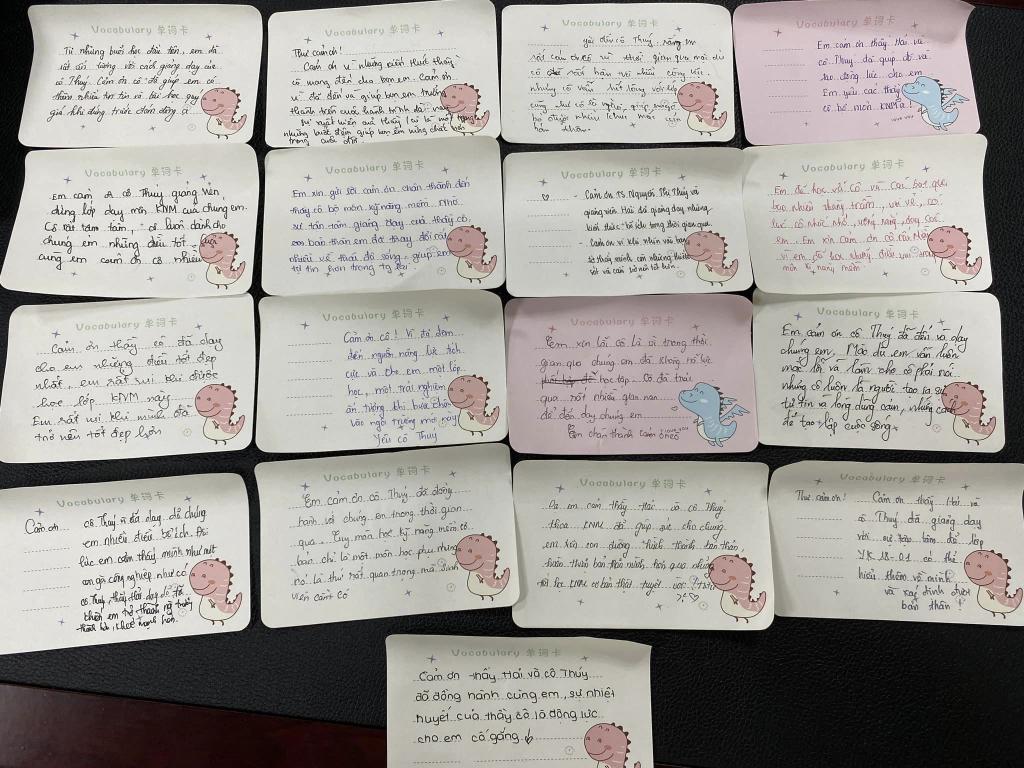 Vocabulary 单词卡
Từ những buổi học đầu tiên, em đã
rất ấn tượng với cách giảng dạy của
cô Thuý. Cảm ơn cô đã giúp em có
thêm nhiều tự tin và bài học quý
giá khi đứng trước đám đông ạ
Vocabulary 单词卡
Thư cảm ơn!
Cảm ơn vì những kiến thức thầy
cô mang đến cho bọn em. Cảm ơn
vì đã đến và giúp bọn em trưởng
thành trên cuối hành trình dài này
Sự xuất hiện của thầy (cô) là một trong
những bước đệm giúp bọn em vững chắc hơn
trong cuộc đời.
Vocabulary 单词卡
gửi đến cô Thuý, nàng em
rất cảm ơn cô vì thời gian qua mặc dù
cô rất bận với nhiều công việc.
nhưng cô vẫn hết lòng với lớp
cũng như có tố nghề, giúp em
bọn được nhiều thứ mới
bản thân.
Vocabulary 单词卡
Em cảm ơn thầy Hải và
cô Thuý đã giúp đỡ và
tạo động lực cho em
Em yêu các thầy
cô bộ môn KNM ạ!
LOVE YOU
Vocabulary 单词卡
Em cảm ơn cô Thuý giảng viên
đứng lớp dạy môn KNM của chúng em.
Cô rất tâm tâm, cô luôn dành cho
chúng em những điều tốt
cung em cảm ơn cô nhiều
Vocabulary 单词卡
Em xin gửi lời cảm ơn chân thành đến
thầy cô bộ môn kỹ năng mềm. Nhờ
sự tận tâm giảng dạy của thầy cô,
em bản thân em đã thay đổi rất
nhiều về thái độ sống, giúp em
tự tin hơn trong
Vocabulary 单词卡
- Cảm ơn TS. Nguyễn Thị Thuý và
giảng viên Hải đã giảng dạy những
kiến thức bổ ích trong thời gian qua.
- Cảm ơn vì khi nhìn vài bạn
tớ thấy mình còn những thiếu
sót và cần trở nên tốt hơn.
Vocabulary 单词卡
Em đã học về cô và các bạn qua
bao nhiêu tháng trầm, vui vẻ, có
lúc có nhức nhố, vương nắng, động
em. Em xin cảm ơn cô rất
vì em đã học nhưng điều
môn kĩ năng mềm.
Vocabulary 单词卡
Cảm ơn thầy cô đã dạy
cho em những điều tốt đẹp
nhất, em rất vui khi được
học lớp KNM này.
Em rất vui khi mình đã
trở nên tốt đẹp hơn
Vocabulary 单词卡
Cảm ơn cô! Vì đã đem
đến nguồn năng lực tích
cực và cho em một lớp
học, một trải nghiệm
ấn tượng khi bước chân
vào ngôi trường mới này
Yêu cô Thuý
Vocabulary 单词卡
Em xin lỗi cô là vì trong thời
gian qua chúng em đã không nỗ lực
học tập. Cô đã trải
qua rất nhiều gian nan
để đến dạy chúng em
Em chân thành cảm ơn cô
I LOVE YOU
Vocabulary 单词卡
Em cảm ơn cô Thuý đã đến và dạy
chúng em. Mặc dù em vẫn luôn
mắc lỗi và làm cho cô phải nói
nhưng cô luôn là người tạo ra sự
tự tin và lòng dũng cảm, những cách
để tạo lập cuộc sống
Vocabulary 单词卡
Cảm ơn cô Thuý vì đã dạy dỗ chúng
em nhiều điều bổ ích. Đôi
lúc em cảm thấy mình như một
con gà công nghiệp nhưng có
cô Thuý, thầy Hải dạy dỗ đã
khiến em trở thành người trưởng
thành hơn, khoẻ mạnh hơn.
Vocabulary 单词卡
Em cảm ơn cô Thuý đã đồng
hành với chúng em trong thời gian
qua. Tuy môn học kỹ năng mềm cơ
bản chỉ là một môn học phụ nhưng
nó là thứ rất quan trọng mà sinh
viên cần có
Vocabulary 单词卡
Dạ em cảm thầy Hải và cô Thuý
khoa KNM đã giúp đỡ cho chúng
em xin con đường hình thành bản thân,
hoàn thiện bản thân mình hơn qua những
KNM cơ bản thật tuyệt vời
Vocabulary 单词卡
Thư cảm ơn! Cảm ơn thầy Hải và
cô Thuý đã giảng dạy
với sự tận tâm để lớp
YK 18-01 có thể
hiểu thêm về mình
và xác định được
bản thân!
Vocabulary 单词卡
Cảm ơn thầy Hải và cô Thúy
đã đồng hành cùng em, sự nhiệt
huyết của thầy cô là động lực
cho em cố gắng